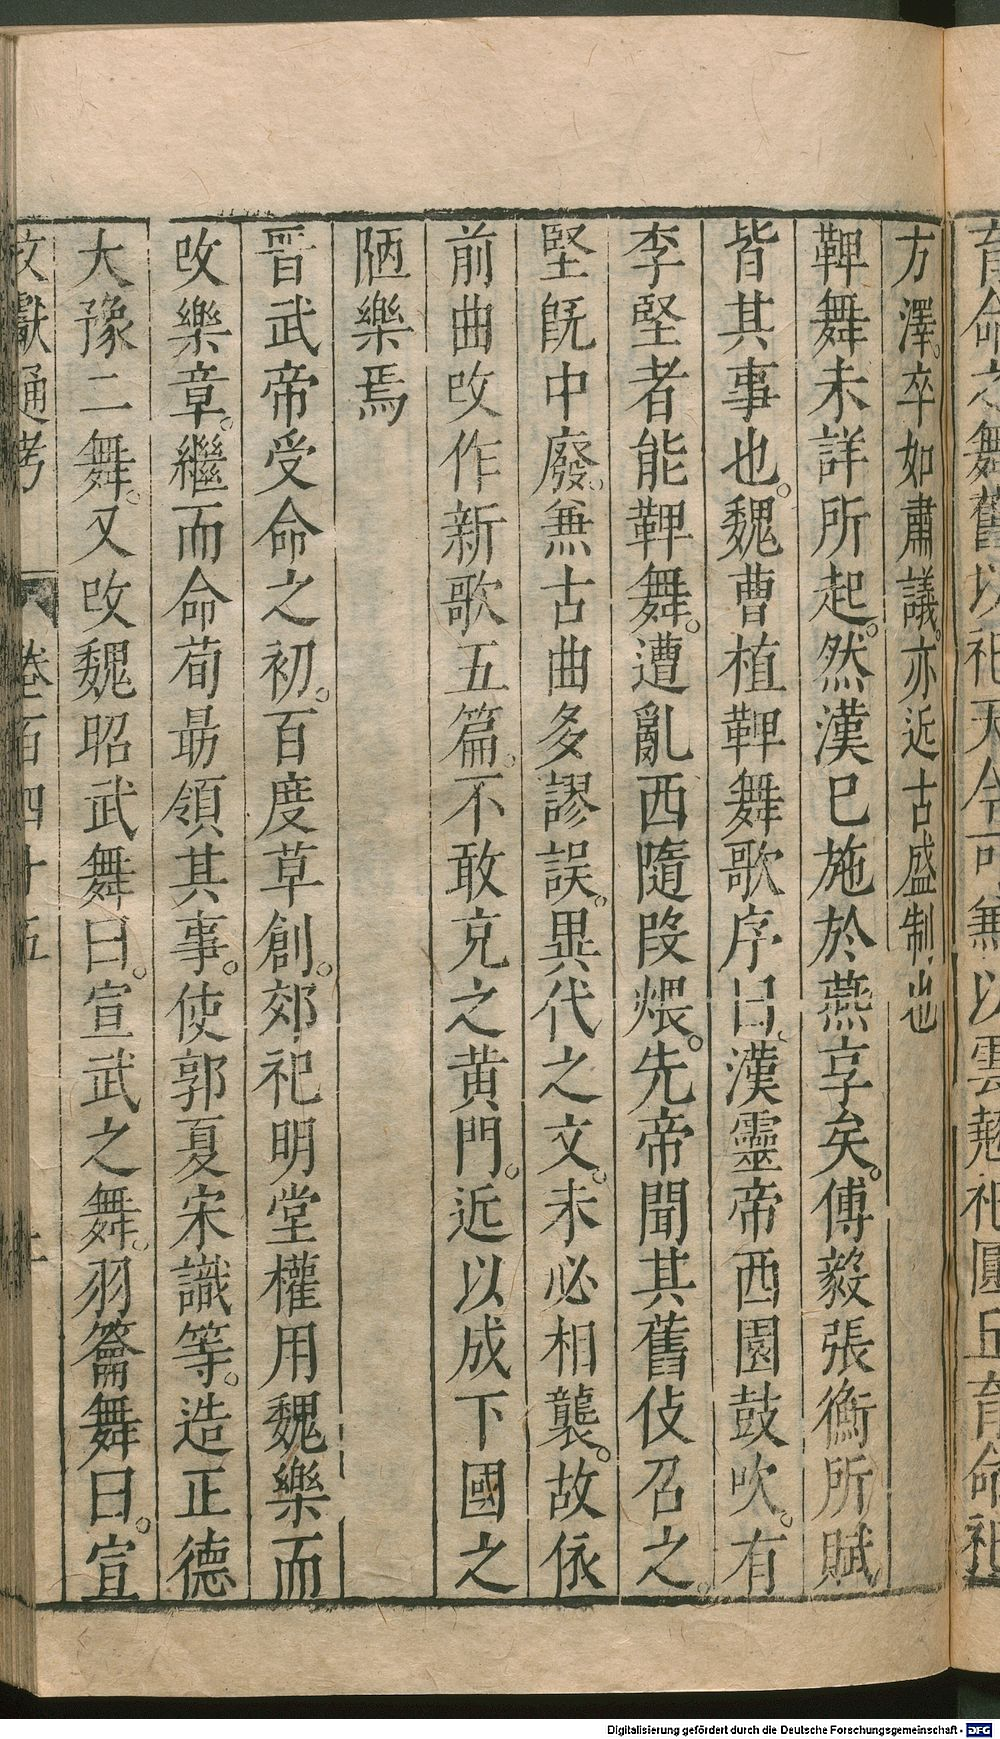 育命之舞舊以祀天今可無以雲翹祀圓丘育命祀
方澤。卒如肅議。亦近古盛制也
鞞舞未詳所起。然漢已施於燕享矣。傅毅張衡所賦
皆其事也。魏曹植鞞舞歌序曰。漢靈帝西園鼓吹。有
李堅者能鞞舞。遭亂西隨段煨。先帝聞其舊伎召之。
堅旣中廢。無古曲多謬誤。異代之文。未必相襲。故依
前曲改作新歌五篇。不敢充之黃門。近以成下國之
陋樂焉
晉武帝受命之初。百度草創。郊祀明堂權用魏樂而
改樂章。繼而命荀勗領其事。使郭夏宋識等。造正德
大豫二舞。又改魏昭武舞曰。宣武之舞。羽籥舞曰。宣
文獻通考 卷百四十五
Digitalisierung gefördert durch die Deutsche Forschungsgemeinschaft - DFG